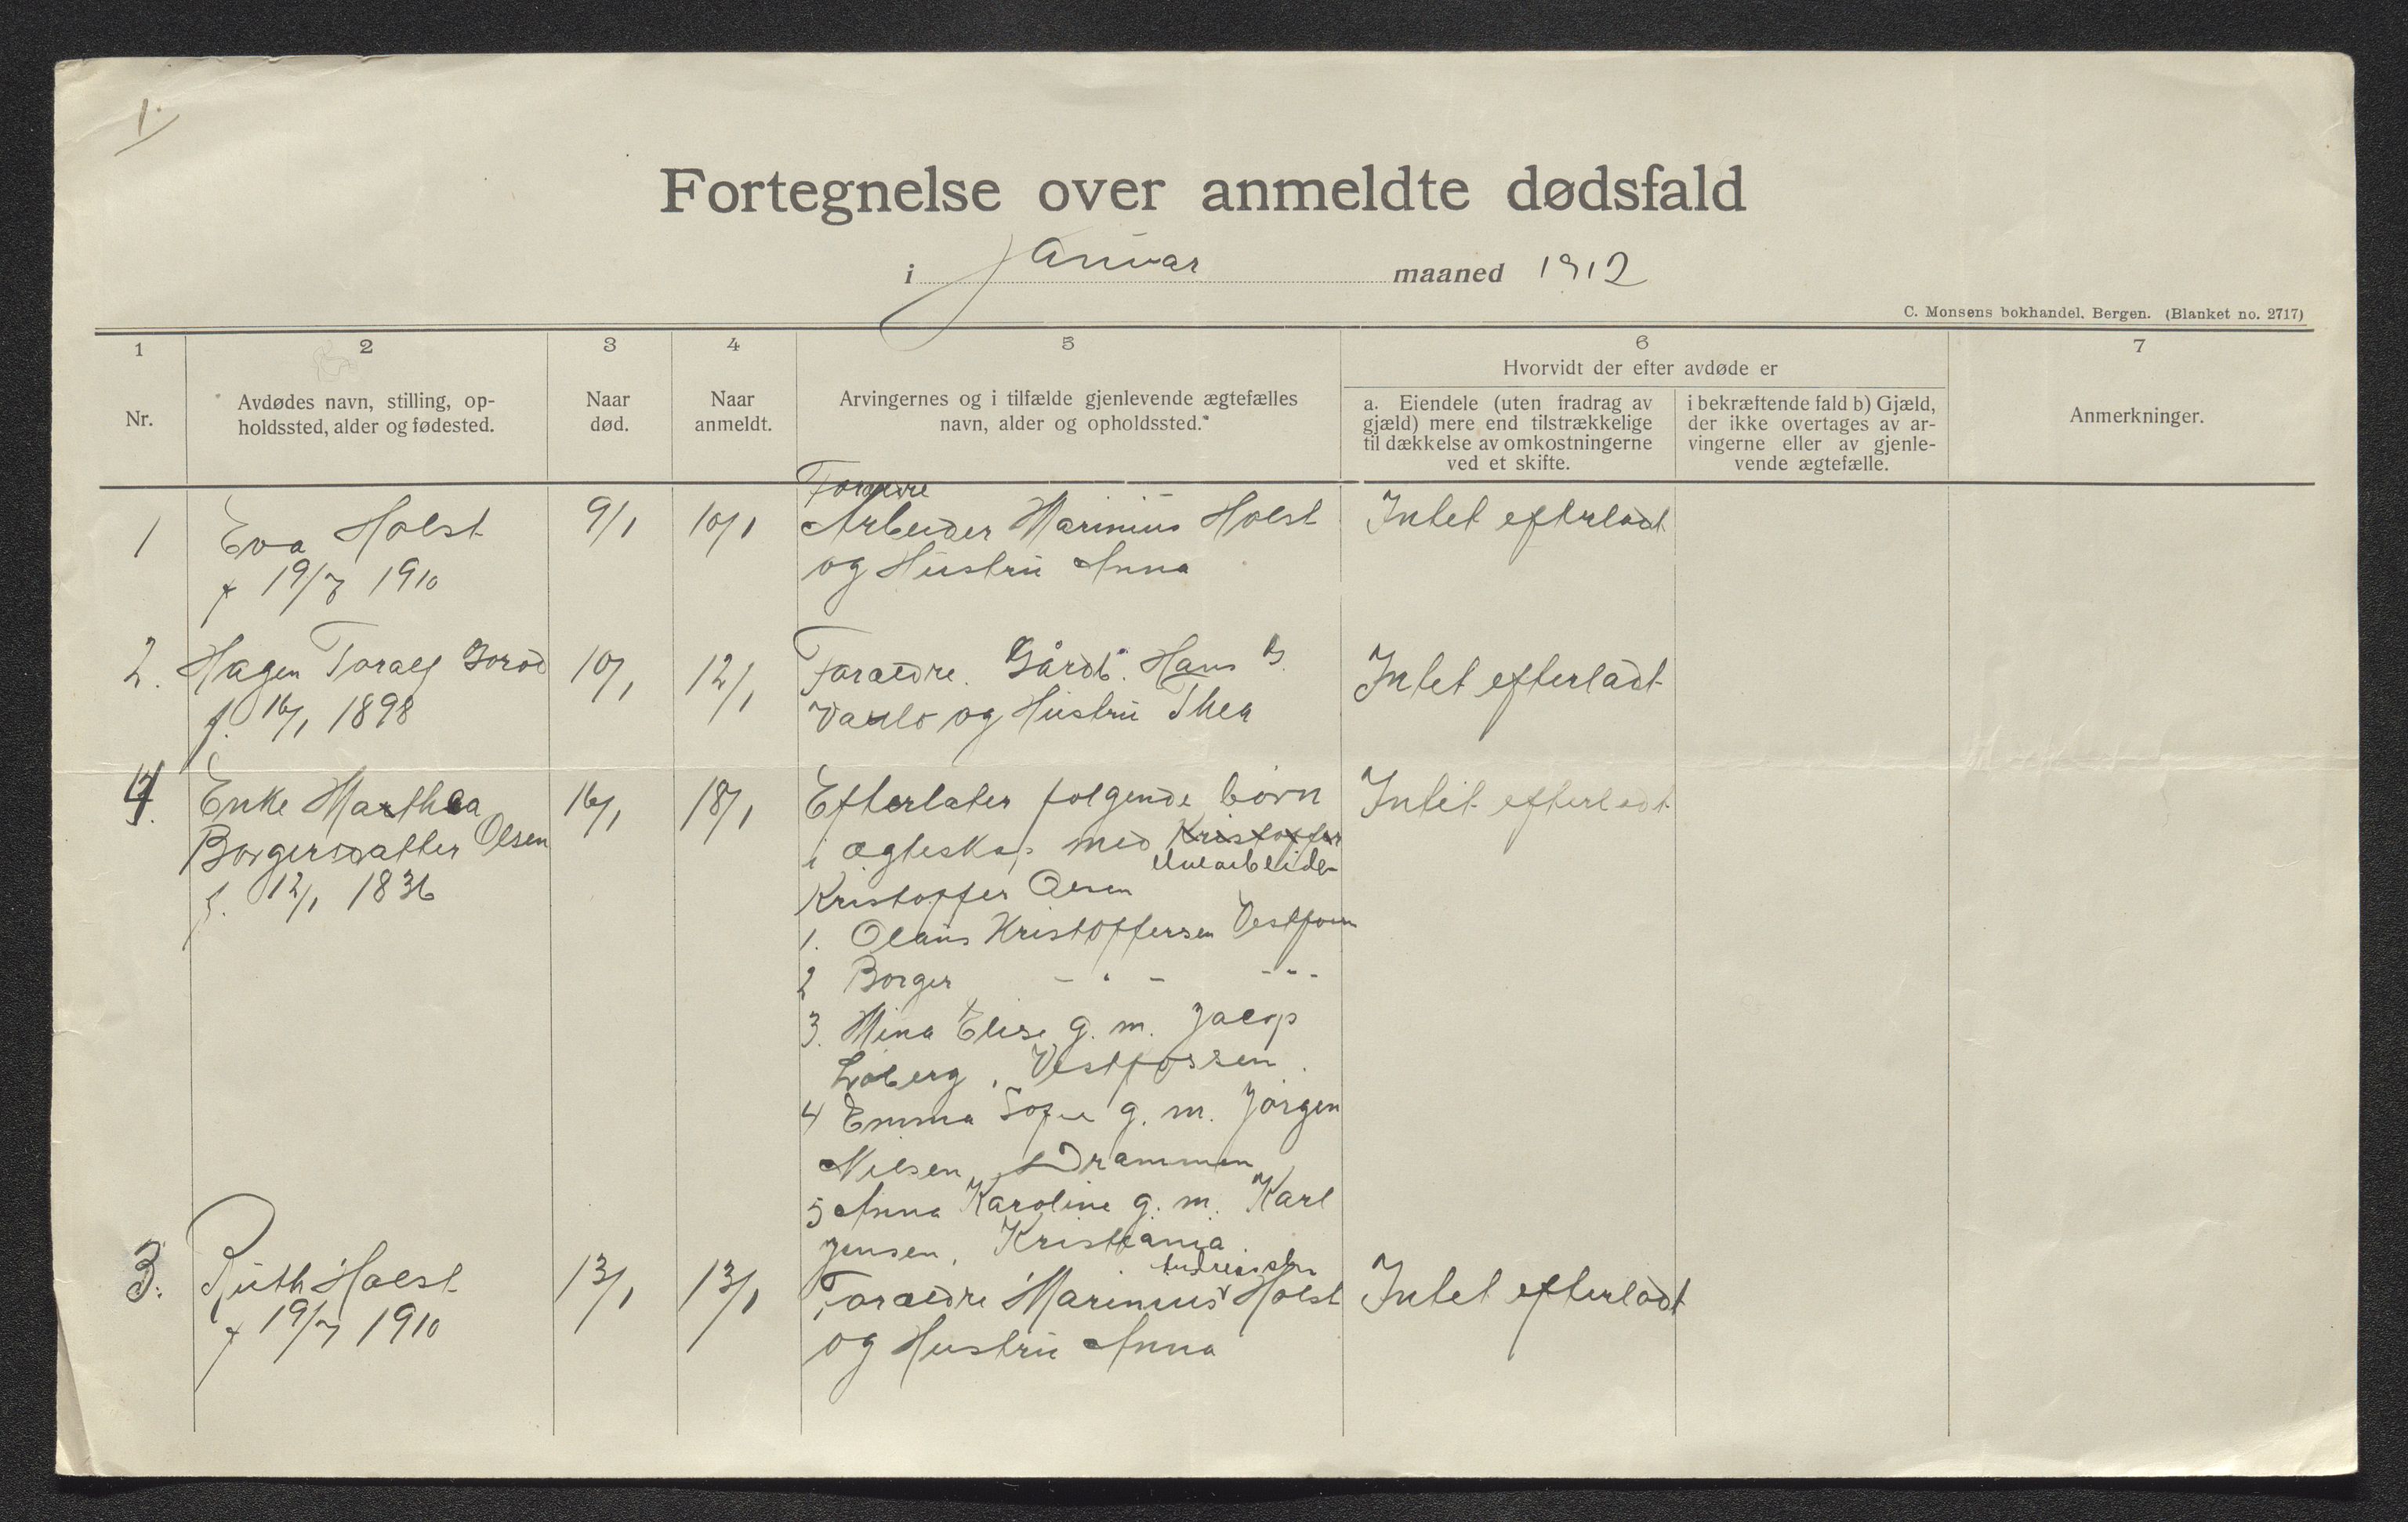 1.
Fortegnelse over anmeldte dødsfald
i Januar maaned 1912
C. Monsens bokhandel. Bergen. (Blanket no. 2717)
1
Nr.
2
Avdødes navn, stilling, op-
holdssted, alder og fødested.
3
Naar
død.
4
Naar
anmeldt.
5
Arvingernes og i tilfælde gjenlevende ægtefælles
navn, alder og opholdssted.
6
Hvorvidt der efter avdøde er
a. Eiendele (uten fradrag av
gjæld) mere end tilstrækkelige
til dækkelse av omkostningerne
ved et skifte.
i bekræftende fald b) Gjæld,
der ikke overtages av ar-
vingerne eller av gjenle-
vende ægtefælle.
7
Anmerkninger.
1
Eva Holst
f 19/7 1910
9/1
10/1
Forældre
Arbeider Marinius Holst
og Hustru Anna
Intet efterladt
2.
Hagen Toralf
f. 16/1 1898
10/1
12/1
Forældre. Gårdb. Hans
og Hustru Thea
Intet efterladt
4.
Enke Marthea
Borgersdatter Olsen
f. 12/1 1836
16/1
18/1
Efterlater følgende børn
i ægteskap med Kristoffer
Kristoffer Olsen
1. Olaus Kristoffersen
2 Borger - " - - " -
3. Mina Elise g. m. Jacop
Loberg, Vestfossen.
4 Emma Sofie g. m. Jørgen
Nilsen, Drammen
5 Anna Karoline g. m. Karl
Jensen, Kristiania
Intet efterladt
3.
Ruth Holst
f 19/7 1910
13/1
13/1
Forældre Marinius Holst
og Hustru Anna
Intet efterladt